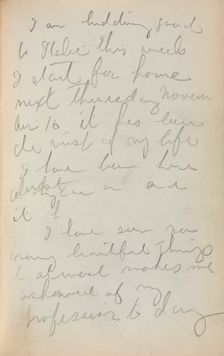 I am bidding good
to Italie this week
I start for home
next thursday Novem
ber 16 it has been
the visit of my life
I have been here
a in and
it
I have seen so
many beautiful things
it almost makes me
ashamed of my
profession to day